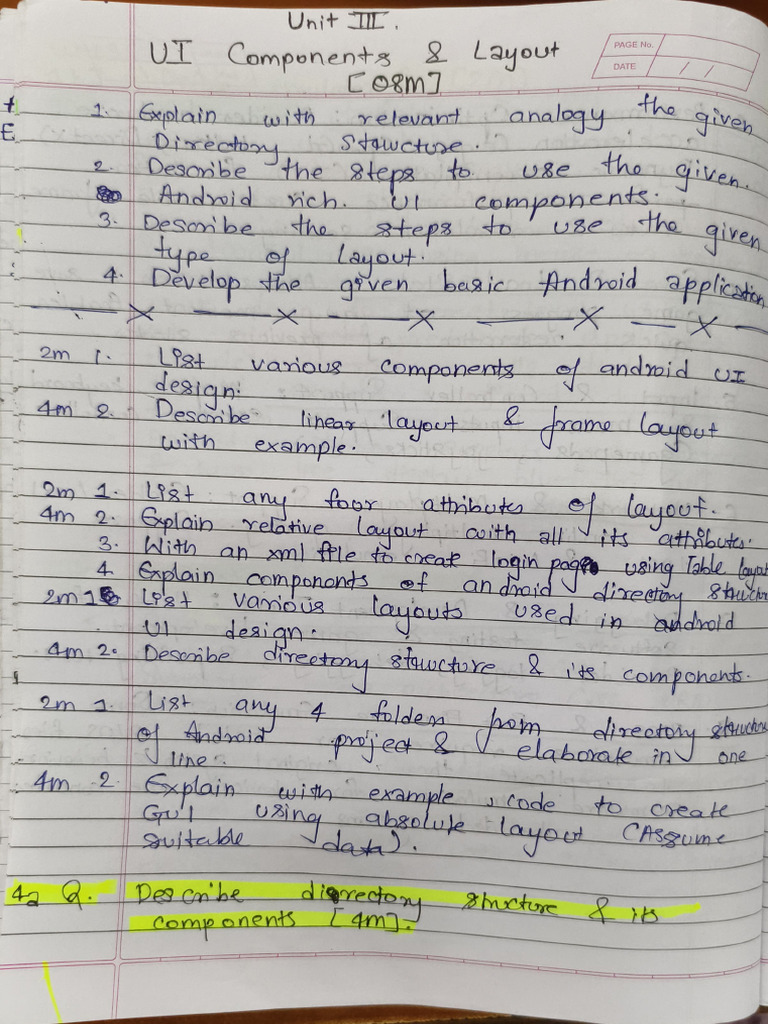 Unit III.
UI Components & Layout
[08M]
PAGE No.
DATE / /
1. Explain with relevant analogy the given
Directory structure.
2. Describe the steps to use the given.
Android rich. UI components.
3. Describe the steps to use the given
type of layout.
4. Develop the given basic Android application
2m 1. List various components of android UI
design.
4m 2. Describe linear layout & frame layout
with example.
2m 1. List any four attributes of layout.
4m 2. Explain relative layout with all its attributes.
3. With an xml file to create login page using Table layout
4. Explain components of android directory structure
2m 1. List various layouts used in android
UI design.
4m 2. Describe directory structure & its components.
2m 1. List any 4 folders from directory structure
of Android project & elaborate in one
line.
4m 2. Explain with example, code to create
GUI using absolute layout (Assume
suitable data).
Q. Describe directory structure & its
components [4m].